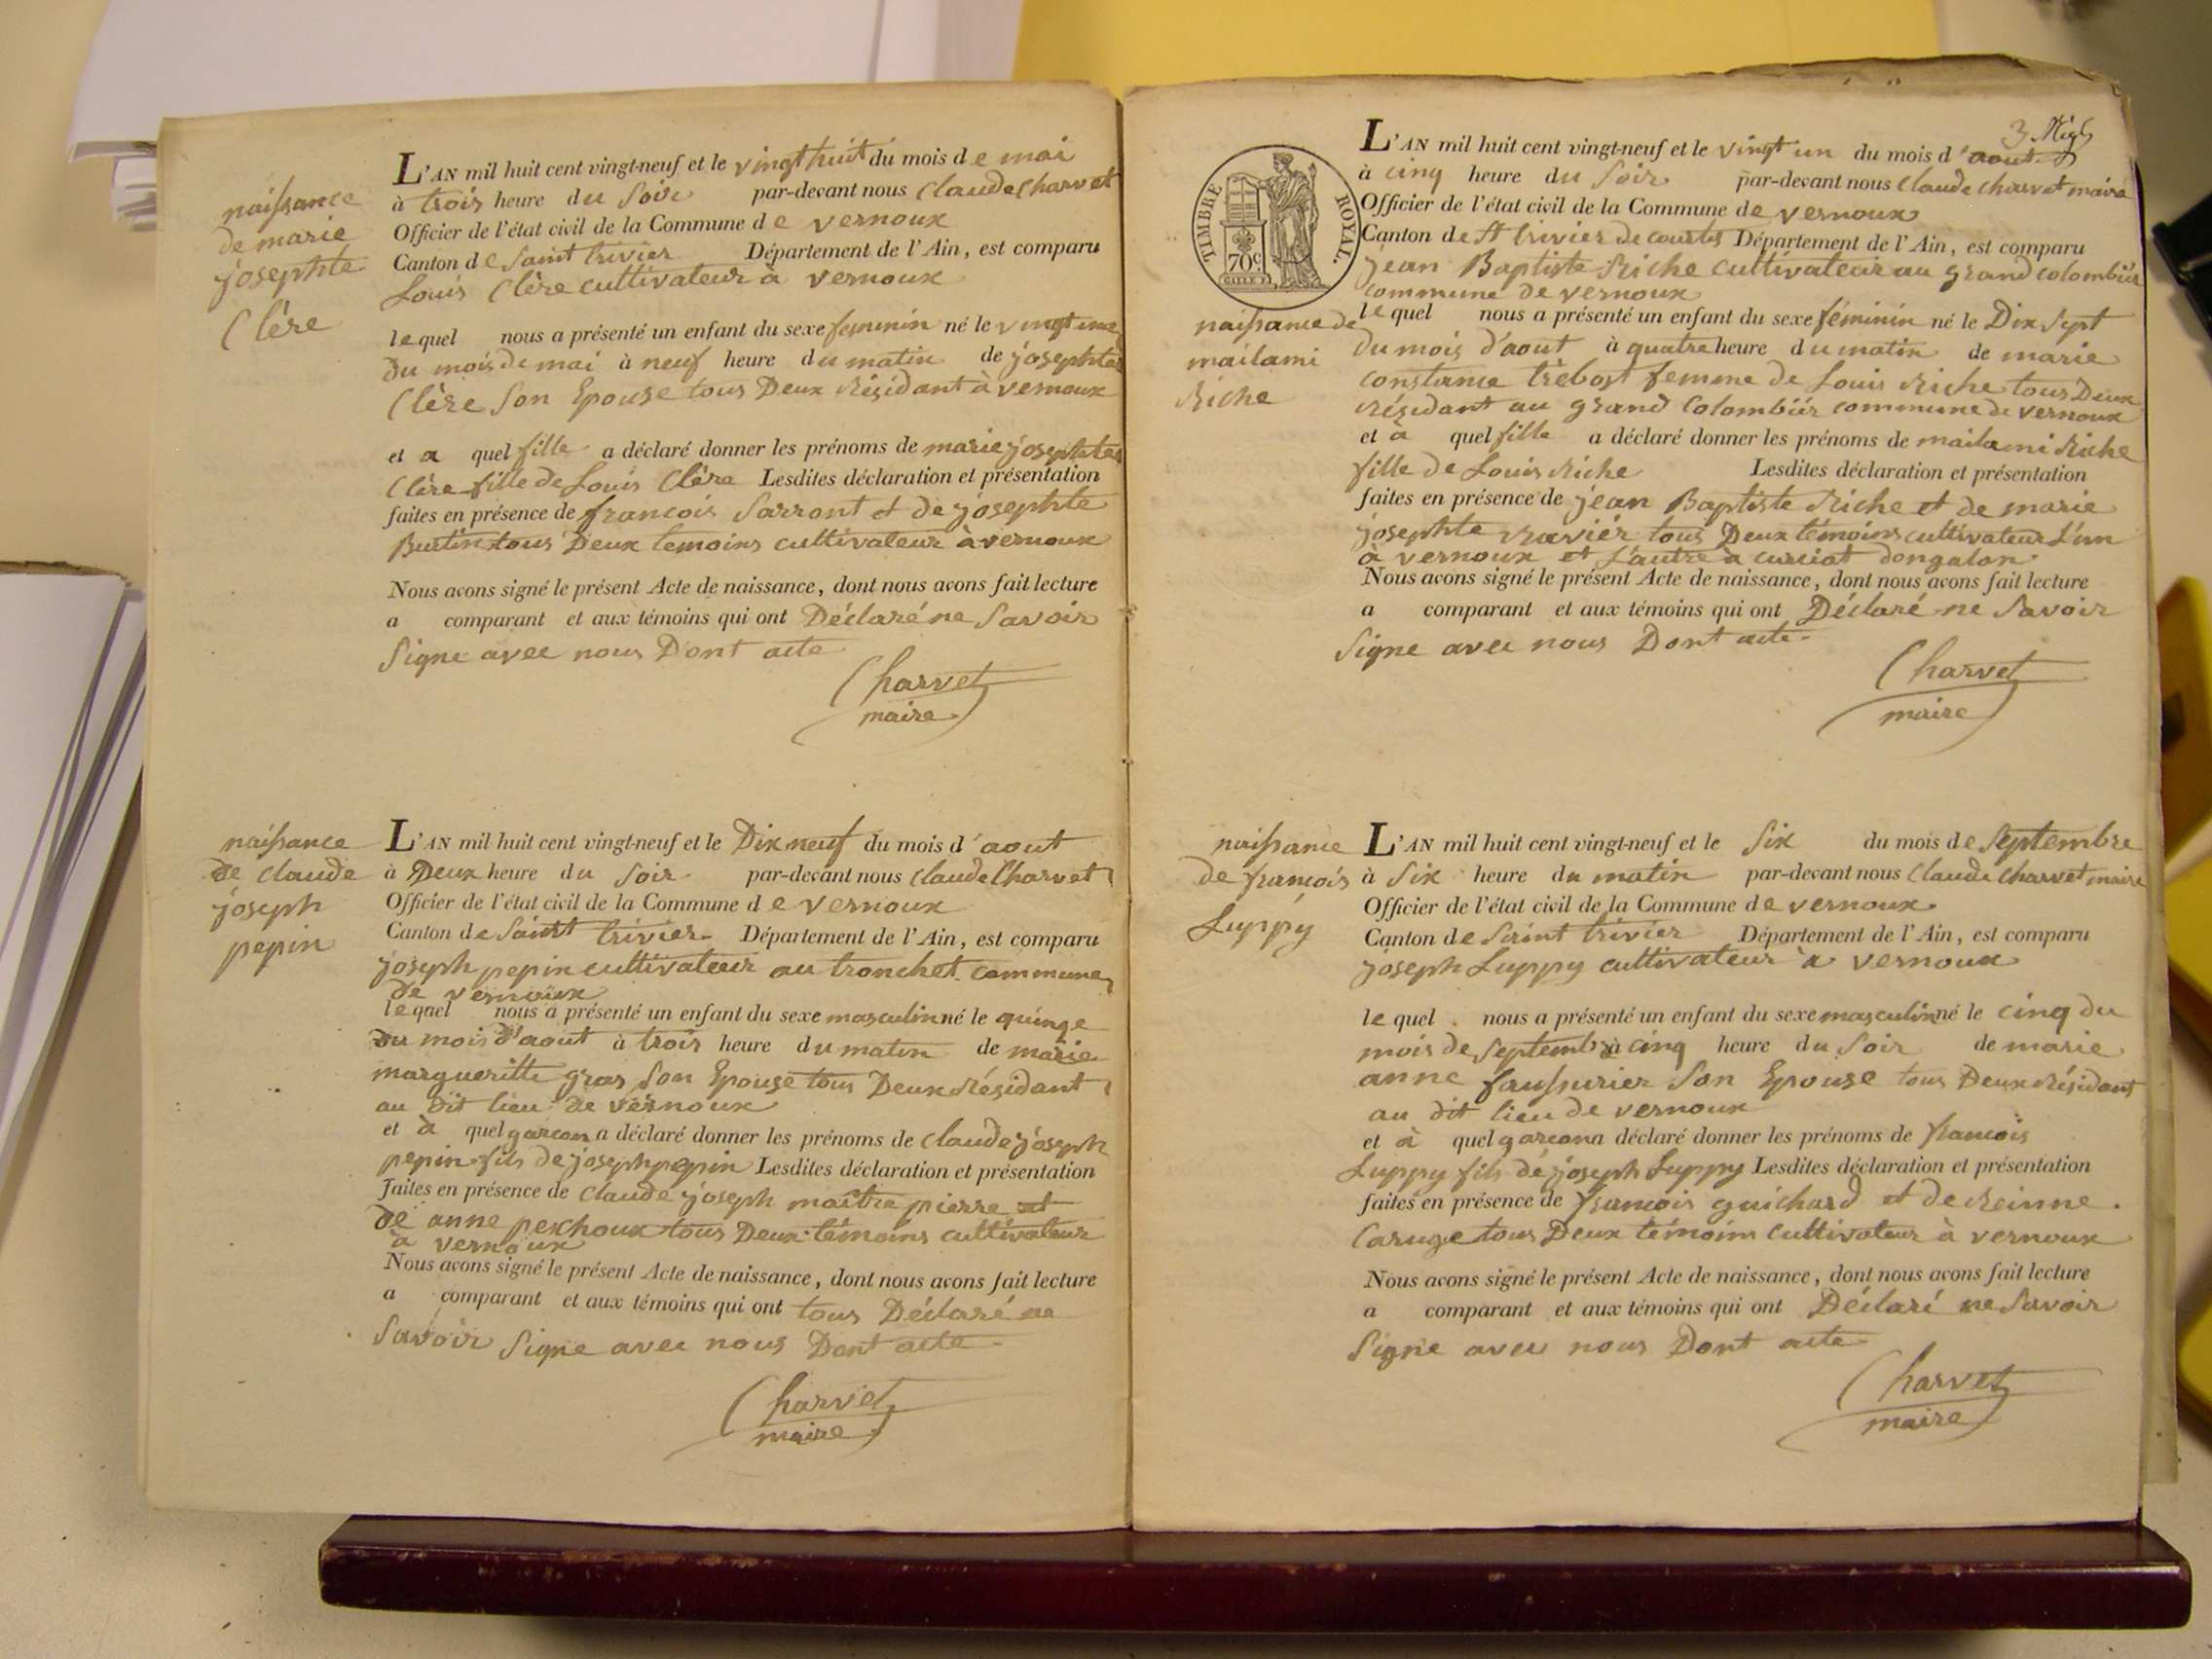 naissance
de marie
josephte
Clère
L'AN mil huit cent vingt-neuf et le vingt huit du mois de mai
à trois heure du Soir par-devant nous Claude Charvet
Officier de l'état civil de la Commune de vernoux
Canton de Saint trivier Département de l'Ain, est comparu
Louis Clère cultivateur à vernoux
lequel nous a présenté un enfant du sexe feminin né le vingt
du mois de mai à neuf heure du matin de josephte
Clère Son Epouse tous Deux résidant à vernoux
et a quel fille a déclaré donner les prénoms de marie josephte
Clère fille de Louis Clère Lesdites déclaration et présentation
faites en présence de francois Sarront et de josephte
Burtin tous Deux temoins cultivateur à vernoux
Nous avons signé le présent Acte de naissance, dont nous avons fait lecture
a comparant et aux témoins qui ont Déclaré ne Savoir
Signe avec nous Dont acte
Charvet
maire
naissance
de Claude
joseph
pepin
L'AN mil huit cent vingt-neuf et le Dix neuf du mois d'aout
à Deux heure du Soir par-devant nous Claude Charvet
Officier de l'état civil de la Commune de vernoux
Canton de Saint trivier Département de l'Ain, est comparu
joseph pepin cultivateur au tronchet commune
de vernoux
lequel nous a présenté un enfant du sexe masculin né le quinze
du mois d'aout à trois heure du matin de marie
margueritte gras Son Epouse tous Deux résidant
au dit lieu de vernoux
et à quel garcon a déclaré donner les prénoms de claude joseph
pepin fils de joseph pepin Lesdites déclaration et présentation
faites en présence de claude joseph maitre pierre et
de anne pexhoux tous Deux témoins cultivateur
à vernoux
Nous avons signé le présent Acte de naissance, dont nous avons fait lecture
a comparant et aux témoins qui ont tous Déclaré ne
Savoir Signe avec nous Dont acte
Charvet
maire
3
TIMBRE ROYAL.
70 c.
naissance de
mailami
Riche
L'AN mil huit cent vingt-neuf et le vingt un du mois d'aout
à cinq heure du Soir par-devant nous Claude charvet maire
Officier de l'état civil de la Commune de vernoux
Canton de St trivier de courtes Département de l'Ain, est comparu
jean Baptiste Riche cultivateur au grand colombier
commune de vernoux
lequel nous a présenté un enfant du sexe féminin né le Dix Sept
du mois d'aout à quatre heure du matin de marie
constance trèbost femme de Louis Riche tous Deux
résidant au grand Colombier commune de vernoux
et à quel fille a déclaré donner les prénoms de mailami Riche
fille de Louis Riche Lesdites déclaration et présentation
faites en présence de jean Baptiste Riche et de marie
josephte ravier tous Deux témoins cultivateur L'un
à vernoux et L'autre à curciat dongalon
Nous avons signé le présent Acte de naissance, dont nous avons fait lecture
a comparant et aux témoins qui ont Déclaré ne Savoir
Signe avec nous Dont acte
Charvet
maire
naissance
de francois
Luppy
L'AN mil huit cent vingt-neuf et le Six du mois de Septembre
à Six heure du matin par-devant nous Claude Charvet maire
Officier de l'état civil de la Commune de vernoux
Canton de Saint trivier Département de l'Ain, est comparu
joseph Luppy cultivateur à vernoux
lequel nous a présenté un enfant du sexe masculin né le cinq du
mois de Septembre à cinq heure du Soir de marie
anne faussurier Son Epouse tous Deux résidant
au dit lieu de vernoux
et à quel garcon a déclaré donner les prénoms de francois
Luppy fils de joseph Luppy Lesdites déclaration et présentation
faites en présence de francois guichard et de Reinne
Caruge tous Deux témoins Cultivateur à vernoux
Nous avons signé le présent Acte de naissance, dont nous avons fait lecture
a comparant et aux témoins qui ont Déclaré ne Savoir
Signe avec nous Dont acte
Charvet
maire